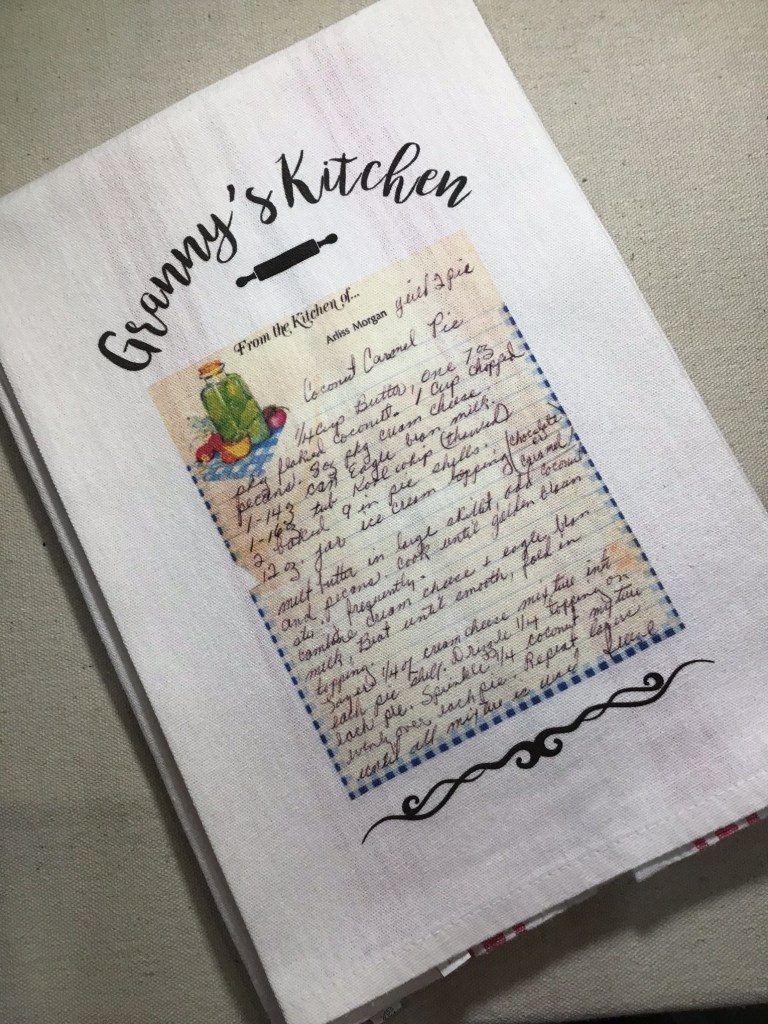 Granny's Kitchen
From the Kitchen of... yield 2 pie
Arliss Morgan
Coconut Caramel Pie
1/4 cup Butter, one 7 oz
pkg flaked coconut. 1 cup chopped
pecans. 8 oz pkg cream cheese.
1-14 oz can Eagle bran milk.
1-16 oz tub Kool whip (thawed)
2 baked 9 in pie shells.
12 oz. jar ice cream topping (chocolate or caramel
melt butter in large skillet, add coconut
and pecans. Cook until golden brown
stir frequently.
Combine cream cheese & eagle bran
milk, Beat until smooth, fold in
topping.
Layer 1/4 of cream cheese mixture into
each pie shell. Drizzle 1/4 topping on
each pie. Sprinkle 1/4 coconut mixture
evenly over each pie. Repeat layers
until all mixture is used